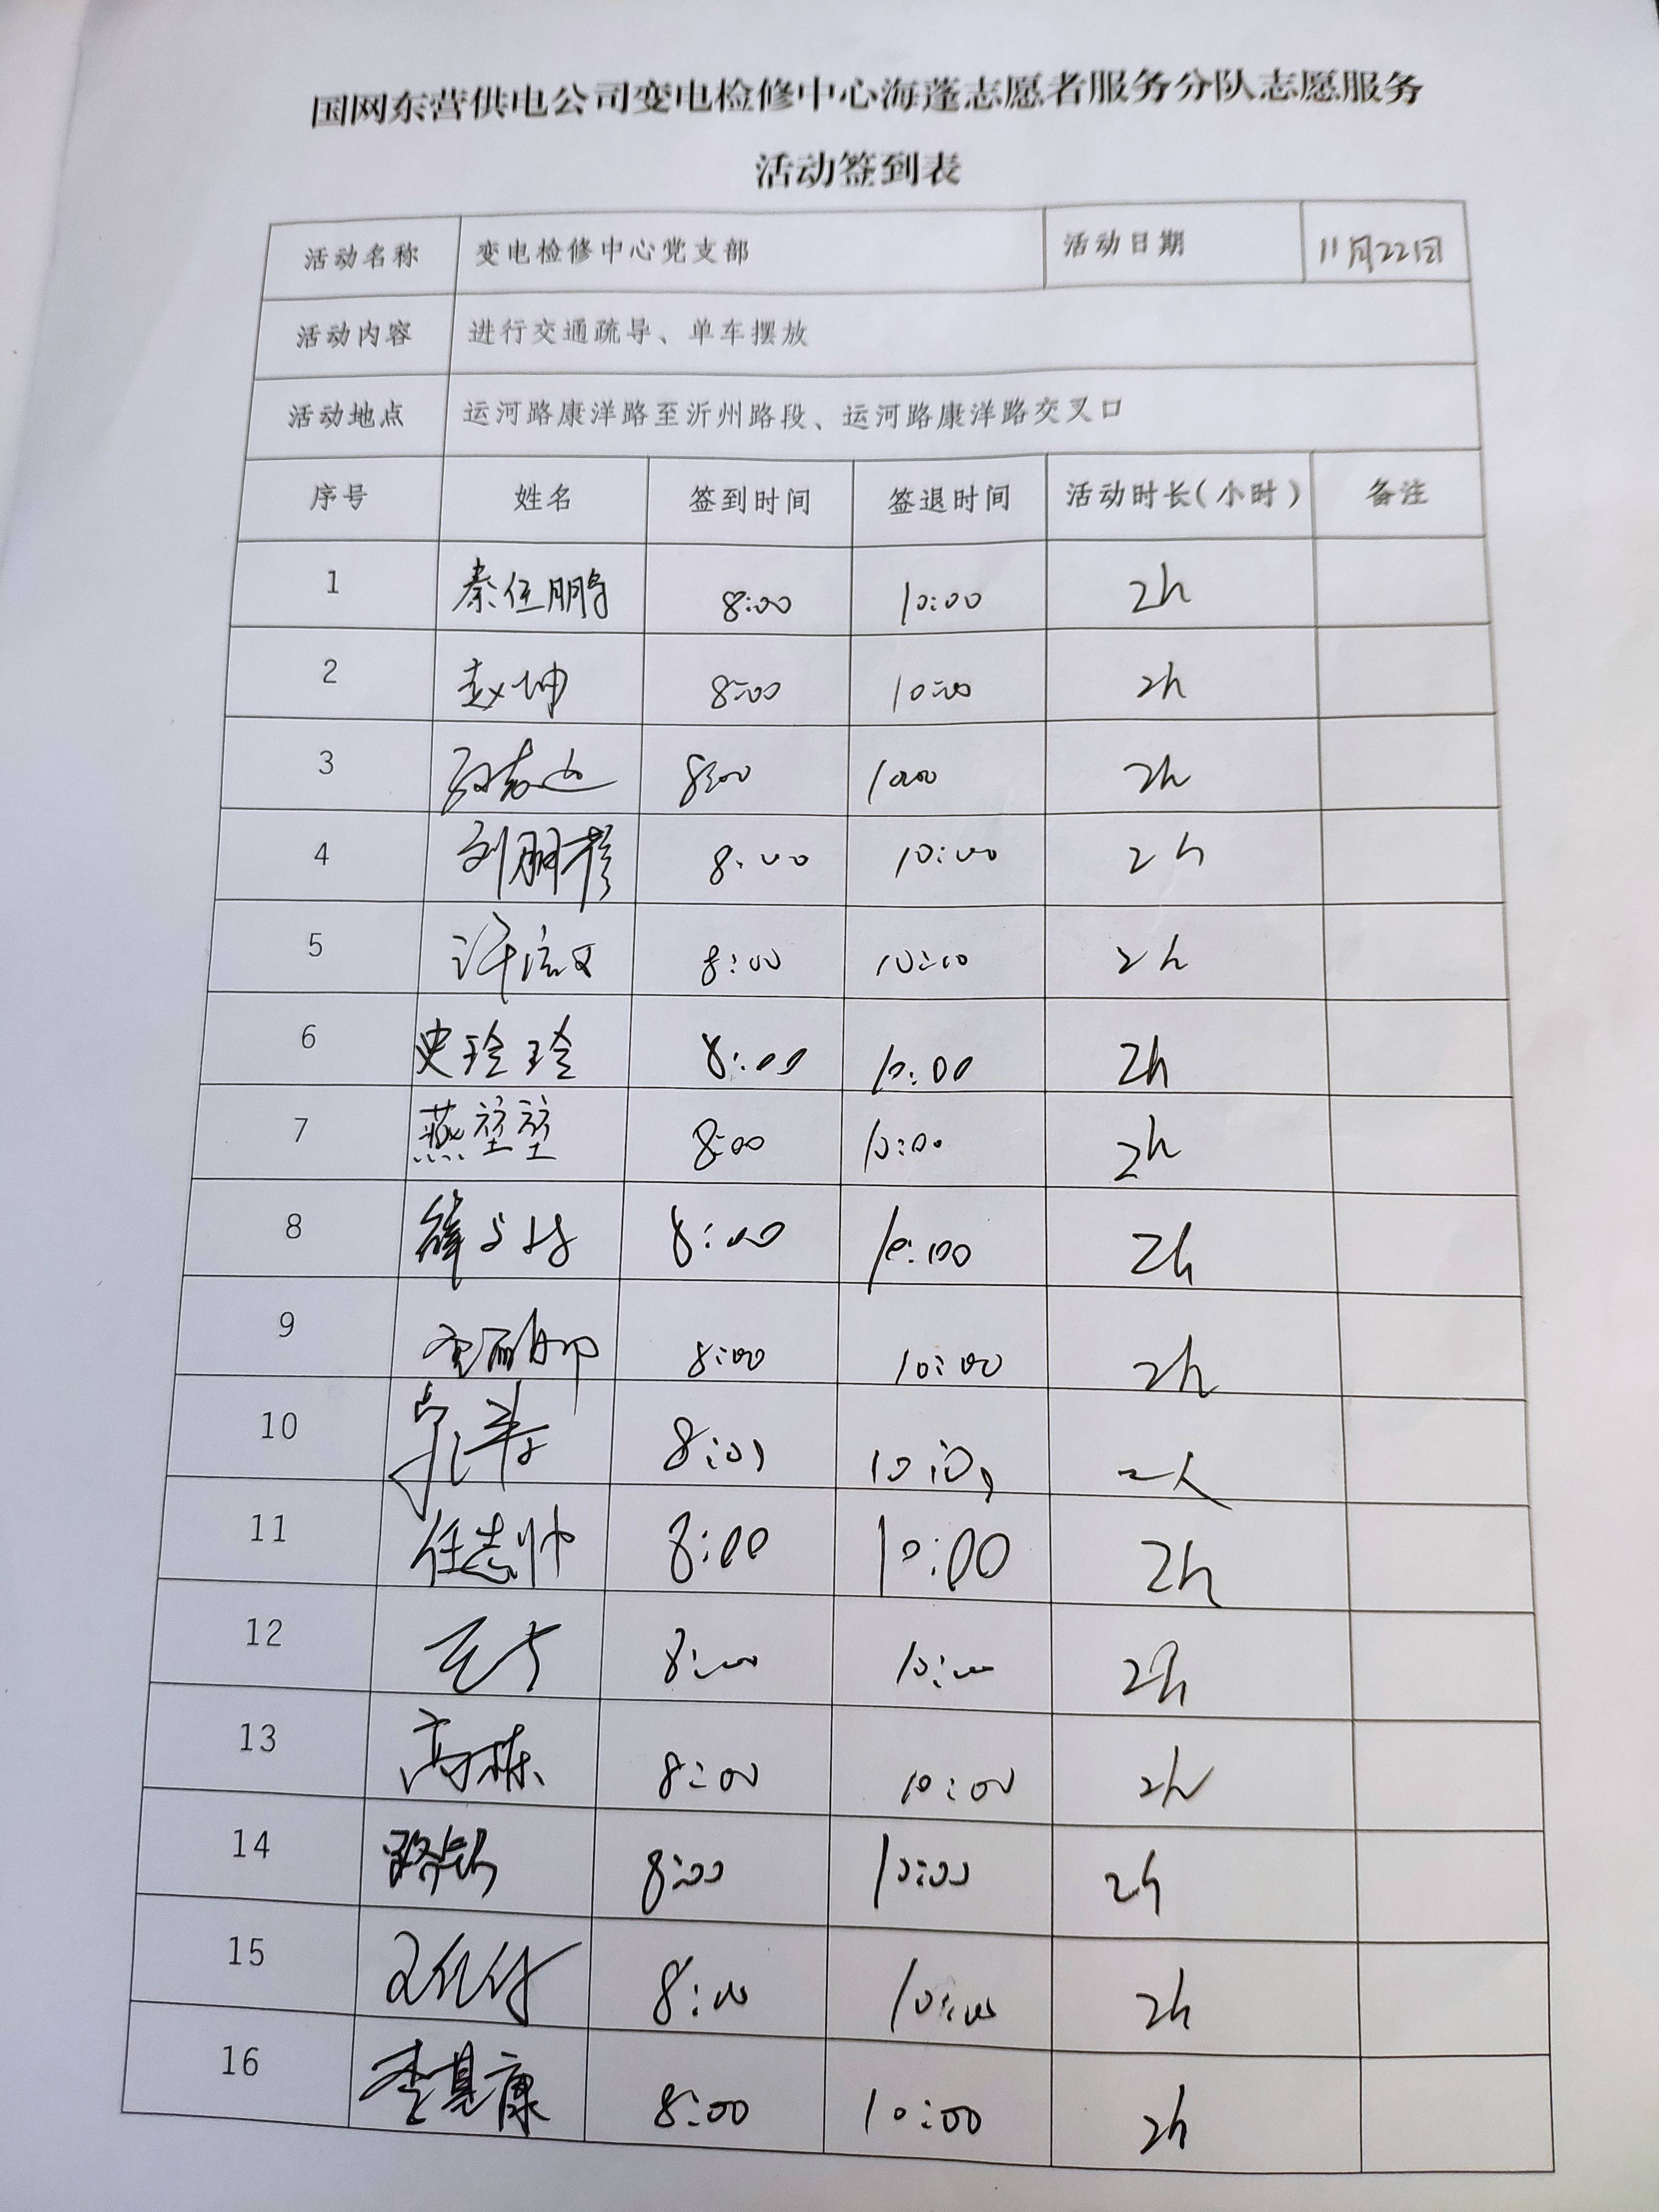 国网东营供电公司变电检修中心海蓬志愿者服务分队志愿服务
活动签到表
活动名称 变电检修中心党支部 活动日期 11月22日
活动内容 进行交通疏导、单车摆放
活动地点 运河路康洋路至沂州路段、运河路康洋路交叉口
序号 姓名 签到时间 签退时间 活动时长(小时) 备注
1 秦位鹏 8:00 10:00 2h
2 赵坤 8:00 10:00 2h
3 8:00 10:00 2h
4 刘朋 8:00 10:00 2h
5 许 8:00 10:00 2h
6 史玲玲 8:00 10:00 2h
7 燕堃堃 8:00 10:00 2h
8 薛 8:00 10:00 2h
9 8:00 10:00 2h
10 8:00 10:00 2h
11 任志帅 8:00 10:00 2h
12 8:00 10:00 2h
13 高栋 8:00 10:00 2h
14 路 8:00 10:00 2h
15 8:00 10:00 2h
16 李其康 8:00 10:00 2h